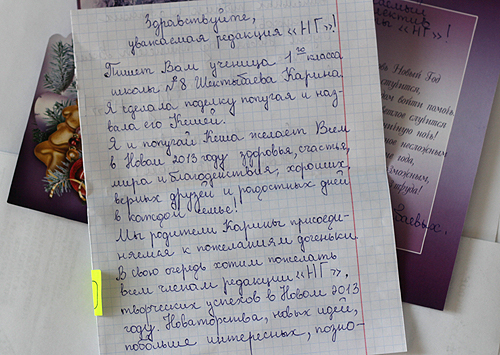 Здравствуйте,
уважаемая редакция «НГ»!
Пишет Вам ученица 1го класса
школы №8 Шектыбаева Карина.
Я сделала поделку попугая и наз-
вала его Кешей.
Я и попугай Кеша желает Всем
в Новом 2013 году здоровья, счастья,
мира и благоденствия, хороших,
верных друзей и радостных дней
в каждой семье!
Мы родители Карины присоеди-
няемся к пожеланиям доченьки.
В свою очередь хотим пожелать
всем членам редакции «НГ»,
творческих успехов в Новом 2013
году. Новаторства, новых идей,
побольше интересных, позна-
«НГ»!
Новый Год
ступится,
войти
случится
ночь!
несложным
года,
труда!